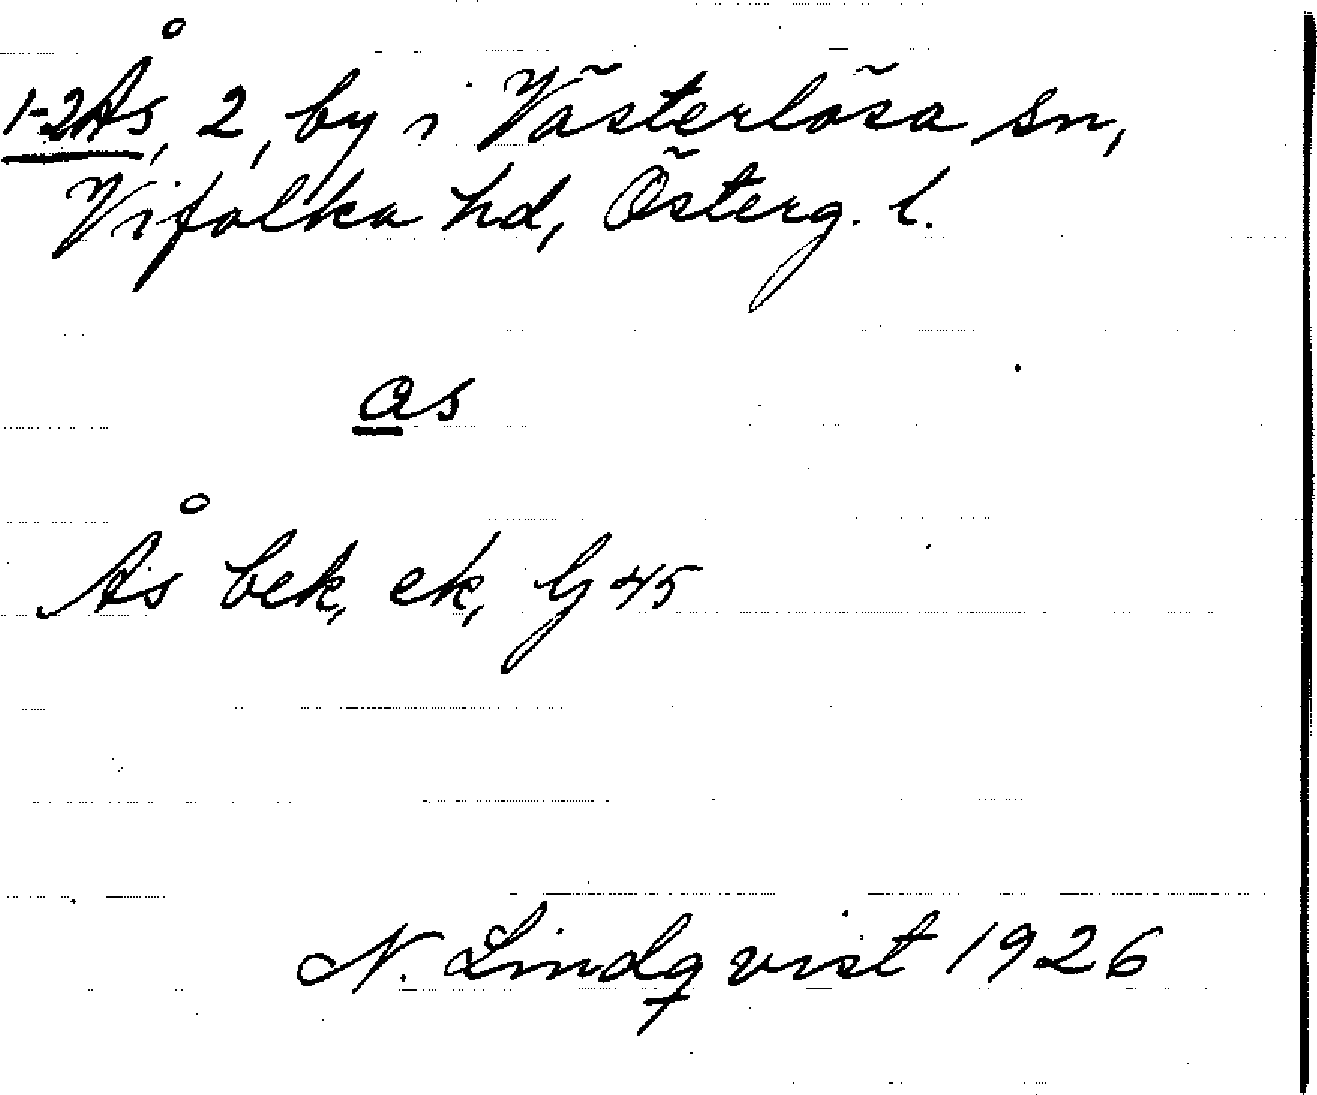 1-2 Ås, 2, by i Västerlösa sn,
Vifolka hd, Österg. l.
as
Ås bek, ek, G 45
N. Lindqvist 1926